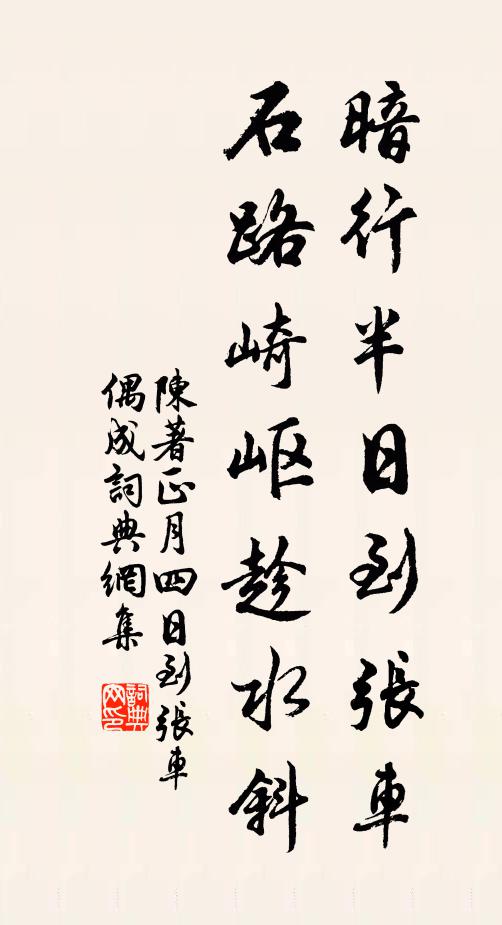 暗行半日到張車
石路崎岖趁水斜
陳著正月四日到張車
偶成詞典網集
詞典网印